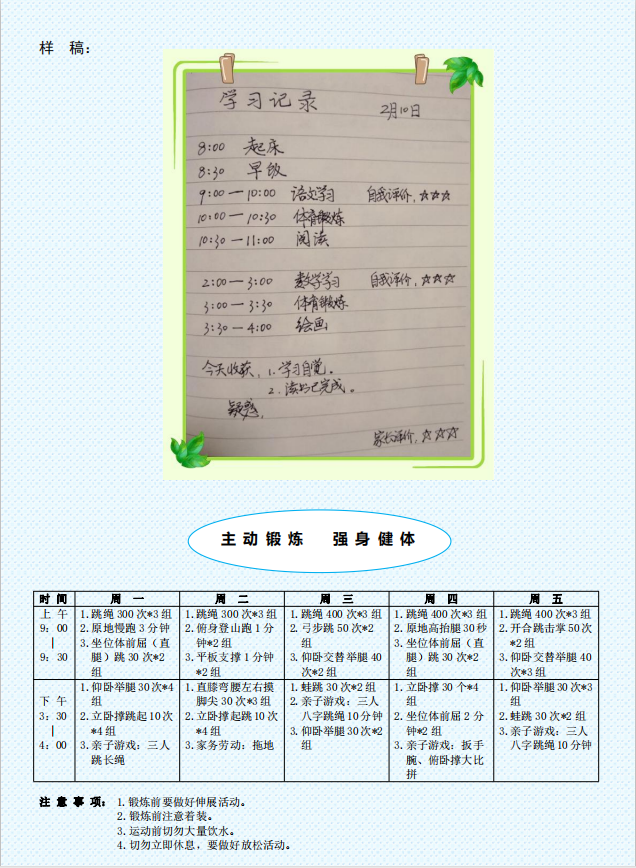 样 稿：
学习记录
2月10日
8:00 起床
8:30 早饭
9:00 — 10:00 语文学习 自我评价，☆☆☆
10:00 — 10:30 体育锻炼
10:30 — 11:00 阅读
2:00 — 3:00 数学学习 自我评价，☆☆☆
3:00 — 3:30 体育锻炼
3:30 — 4:00 绘画
今天收获，1. 学习自觉。
2. 读书已完成。
疑惑，
家长评价，☆☆☆
主动锻炼 强身健体
时间 周一 周二 周三 周四 周五
上午
9：00
|
9：30
1.跳绳 300 次*3 组
2.原地慢跑 3 分钟
3.坐位体前屈（直
腿）跳 30 次*2
组
1.跳绳 300 次*3 组
2.俯身登山跑 1 分
钟*2 组
3.平板支撑 1 分钟
*2 组
1.跳绳 400 次*3 组
2.弓步跳 50 次*2
组
3.仰卧交替举腿 40
次*2 组
1.跳绳 400 次*3 组
2.原地高抬腿 30 秒
3.坐位体前屈（直
腿）跳 30 次*2
组
1.跳绳 400 次*3 组
2.开合跳击掌 50 次
*2 组
3.仰卧交替举腿 40
次*3 组
下午
3：30
|
4：00
1.仰卧举腿 30 次*4
组
2.立卧撑跳起 10 次
*4 组
3.亲子游戏：三人
跳长绳
1.直膝弯腰左右摸
脚尖 30 次*3 组
2.立卧撑起跳 10 次
*4 组
3.家务劳动：拖地
1.蛙跳 30 次*2 组
2.亲子游戏：三人
八字跳绳 10 分钟
3.仰卧举腿 30 次*2
组
1.立卧撑 30 个*4
组
2.坐位体前屈 2 分
钟*2 组
3.亲子游戏：扳手
腕、俯卧撑大比
拼
1.仰卧举腿 30 次*3
组
2.蛙跳 30 次*2 组
3.亲子游戏：三人
八字跳绳 10 分钟
注意事项： 1.锻炼前要做好伸展活动。
2.锻炼前注意着装。
3.运动前切勿大量饮水。
4.切勿立即休息，要做好放松活动。